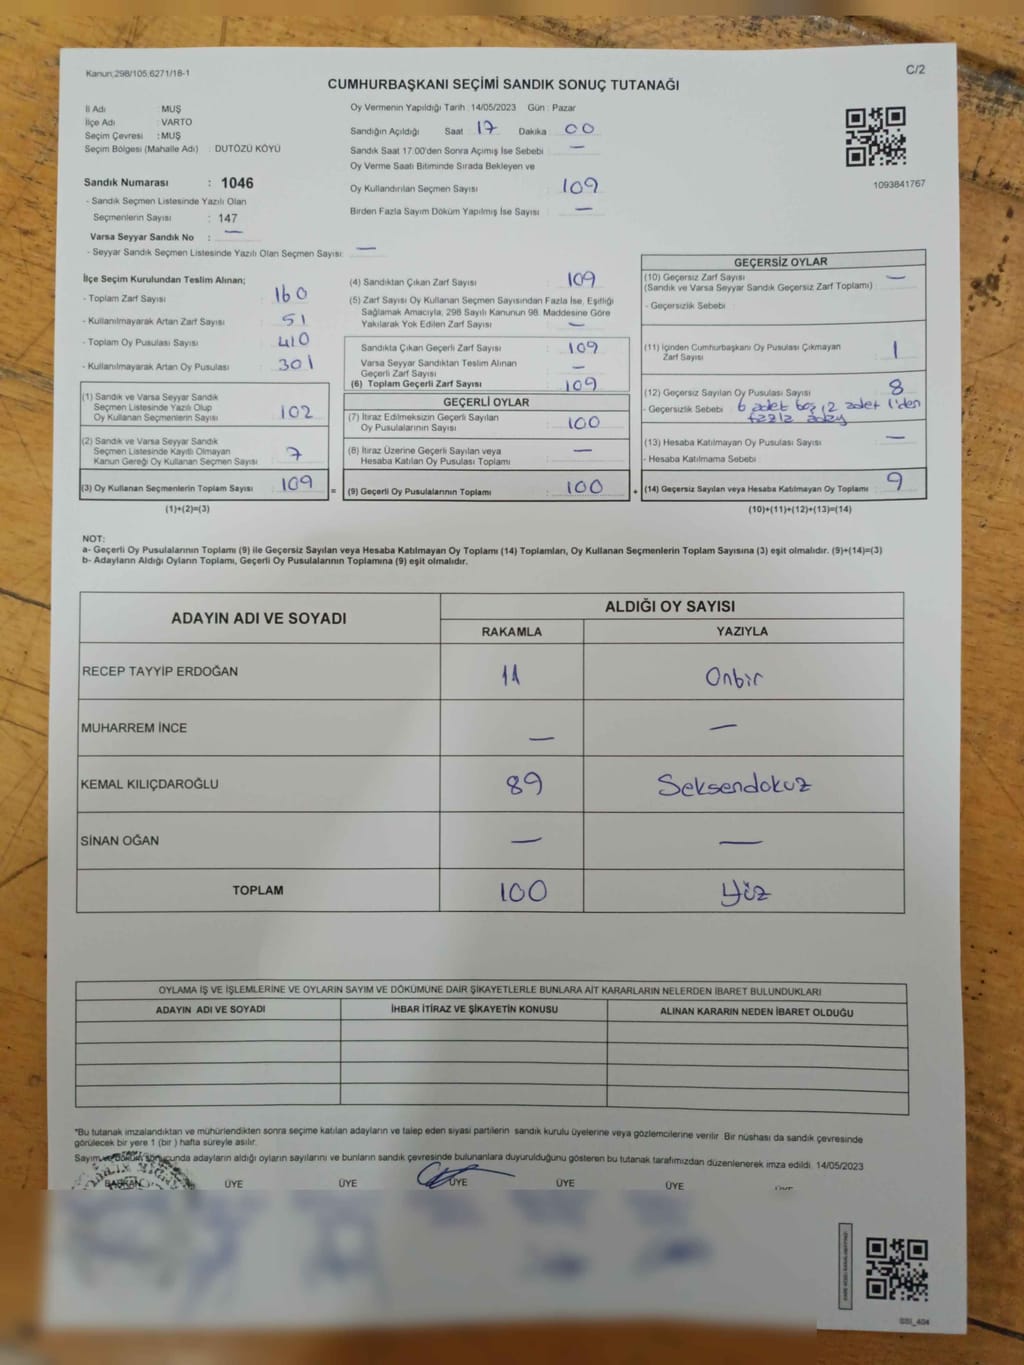 Kanun:298/105,6271/18-1
C/2
CUMHURBAŞKANI SEÇİMİ SANDIK SONUÇ TUTANAĞI
İl Adı : MUŞ
İlçe Adı : VARTO
Seçim Çevresi : MUŞ
Seçim Bölgesi (Mahalle Adı) : DUTÖZÜ KÖYÜ
Sandık Numarası : 1046
- Sandık Seçmen Listesinde Yazılı Olan
Seçmenlerin Sayısı : 147
Varsa Seyyar Sandık No : —
- Seyyar Sandık Seçmen Listesinde Yazılı Olan Seçmen Sayısı: —
Oy Vermenin Yapıldığı Tarih : 14/05/2023 Gün : Pazar
Sandığın Açıldığı Saat 17 Dakika 00
Sandık Saat 17:00'den Sonra Açımış İse Sebebi : —
Oy Verme Saati Bitiminde Sırada Bekleyen ve
Oy Kullandırılan Seçmen Sayısı : 109
Birden Fazla Sayım Döküm Yapılmış İse Sayısı : —
1093841767
İlçe Seçim Kurulundan Teslim Alınan;
- Toplam Zarf Sayısı : 160
- Kullanılmayarak Artan Zarf Sayısı : 51
- Toplam Oy Pusulası Sayısı : 410
- Kullanılmayarak Artan Oy Pusulası : 301
(1) Sandık ve Varsa Seyyar Sandık
Seçmen Listesinde Yazılı Olup
Oy Kullanan Seçmenlerin Sayısı : 102
(2) Sandık ve Varsa Seyyar Sandık
Seçmen Listesinde Kayıtlı Olmayan
Kanun Gereği Oy Kullanan Seçmen Sayısı : 7
(3) Oy Kullanan Seçmenlerin Toplam Sayısı : 109
(1)+(2)=(3)
(4) Sandıktan Çıkan Zarf Sayısı : 109
(5) Zarf Sayısı Oy Kullanan Seçmen Sayısından Fazla İse, Eşitliği
Sağlamak Amacıyla, 298 Sayılı Kanunun 98. Maddesine Göre
Yakılarak Yok Edilen Zarf Sayısı : —
Sandıkta Çıkan Geçerli Zarf Sayısı : 109
Varsa Seyyar Sandıktan Teslim Alınan
Geçerli Zarf Sayısı : —
(6) Toplam Geçerli Zarf Sayısı : 109
GEÇERLİ OYLAR
(7) İtiraz Edilmeksizin Geçerli Sayılan
Oy Pusulalarının Sayısı : 100
(8) İtiraz Üzerine Geçerli Sayılan veya
Hesaba Katılan Oy Pusulası Toplamı : —
= (9) Geçerli Oy Pusulalarının Toplamı : 100 +
GEÇERSİZ OYLAR
(10) Geçersiz Zarf Sayısı : —
(Sandık ve Varsa Seyyar Sandık Geçersiz Zarf Toplamı)
- Geçersizlik Sebebi :
(11) İçinden Cumhurbaşkanı Oy Pusulası Çıkmayan
Zarf Sayısı : 1
(12) Geçersiz Sayılan Oy Pusulası Sayısı : 8
- Geçersizlik Sebebi : 6 adet boş, 2 adet 1'den
fazla aday
(13) Hesaba Katılmayan Oy Pusulası Sayısı : —
- Hesaba Katılmama Sebebi :
(14) Geçersiz Sayılan veya Hesaba Katılmayan Oy Toplamı : 9
(10)+(11)+(12)+(13)=(14)
NOT:
a- Geçerli Oy Pusulalarının Toplamı (9) ile Geçersiz Sayılan veya Hesaba Katılmayan Oy Toplamı (14) Toplamları, Oy Kullanan Seçmenlerin Toplam Sayısına (3) eşit olmalıdır. (9)+(14)=(3)
b- Adayların Aldığı Oyların Toplamı, Geçerli Oy Pusulalarının Toplamına (9) eşit olmalıdır.
ADAYIN ADI VE SOYADI ALDIĞI OY SAYISI
RAKAMLA YAZIYLA
RECEP TAYYİP ERDOĞAN 11 Onbir
MUHARREM İNCE — —
KEMAL KILIÇDAROĞLU 89 Seksendokuz
SİNAN OĞAN — —
TOPLAM 100 Yüz
OYLAMA İŞ VE İŞLEMLERİNE VE OYLARIN SAYIM VE DÖKÜMÜNE DAİR ŞİKAYETLERLE BUNLARA AİT KARARLARIN NELERDEN İBARET BULUNDUKLARI
ADAYIN ADI VE SOYADI İHBAR İTİRAZ VE ŞİKAYETİN KONUSU ALINAN KARARIN NEDEN İBARET OLDUĞU
*Bu tutanak imzalandıktan ve mühürlendikten sonra seçime katılan adayların ve talep eden siyasi partilerin sandık kurulu üyelerine veya gözlemcilerine verilir. Bir nüshası da sandık çevresinde
görülecek bir yere 1 (bir ) hafta süreyle asılır.
Sayım ve döküm sonucunda adayların aldığı oyların sayılarını ve bunların sandık çevresinde bulunanlara duyurulduğunu gösteren bu tutanak tarafımızdan düzenlenerek imza edildi. 14/05/2023
BAŞKAN ÜYE ÜYE ÜYE ÜYE ÜYE
SSI_404